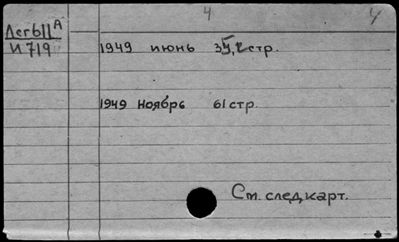 4 4
Лсг6||А
И 719 1949 июнь стр.
1949 Ноябрь 61 стр.
См. след.карт.